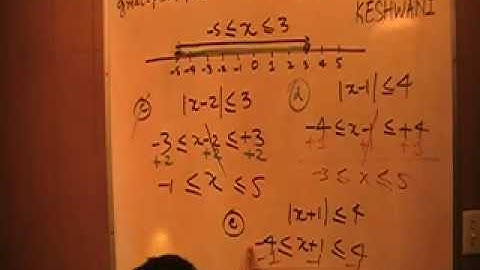 KESHWANI
-5 ≤ x ≤ 3
-5 -4 -3 -2 -1 0 1 2 3 4 5
(c) |x-2| ≤ 3
-3 ≤ x-2 ≤ +3
+2 +2 +2
-1 ≤ x ≤ 5
(d) |x-1| ≤ 4
-4 ≤ x-1 ≤ +4
+1 +1 +1
-3 ≤ x ≤ 5
(e) |x+1| ≤ 4
-4 ≤ x+1 ≤ 4
-1 -1 -1